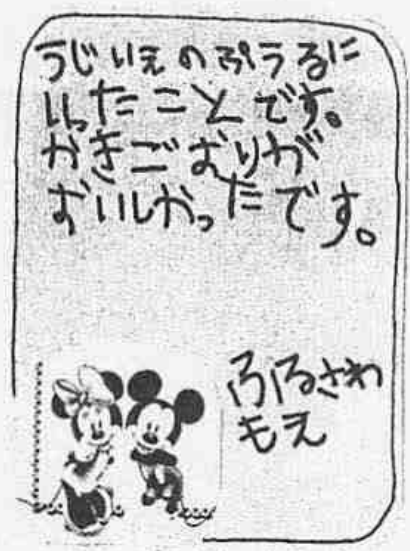 うじいえのぷうるに
いったことです。
かきごおりが
おいしかったです。
ふるさわ
もえ